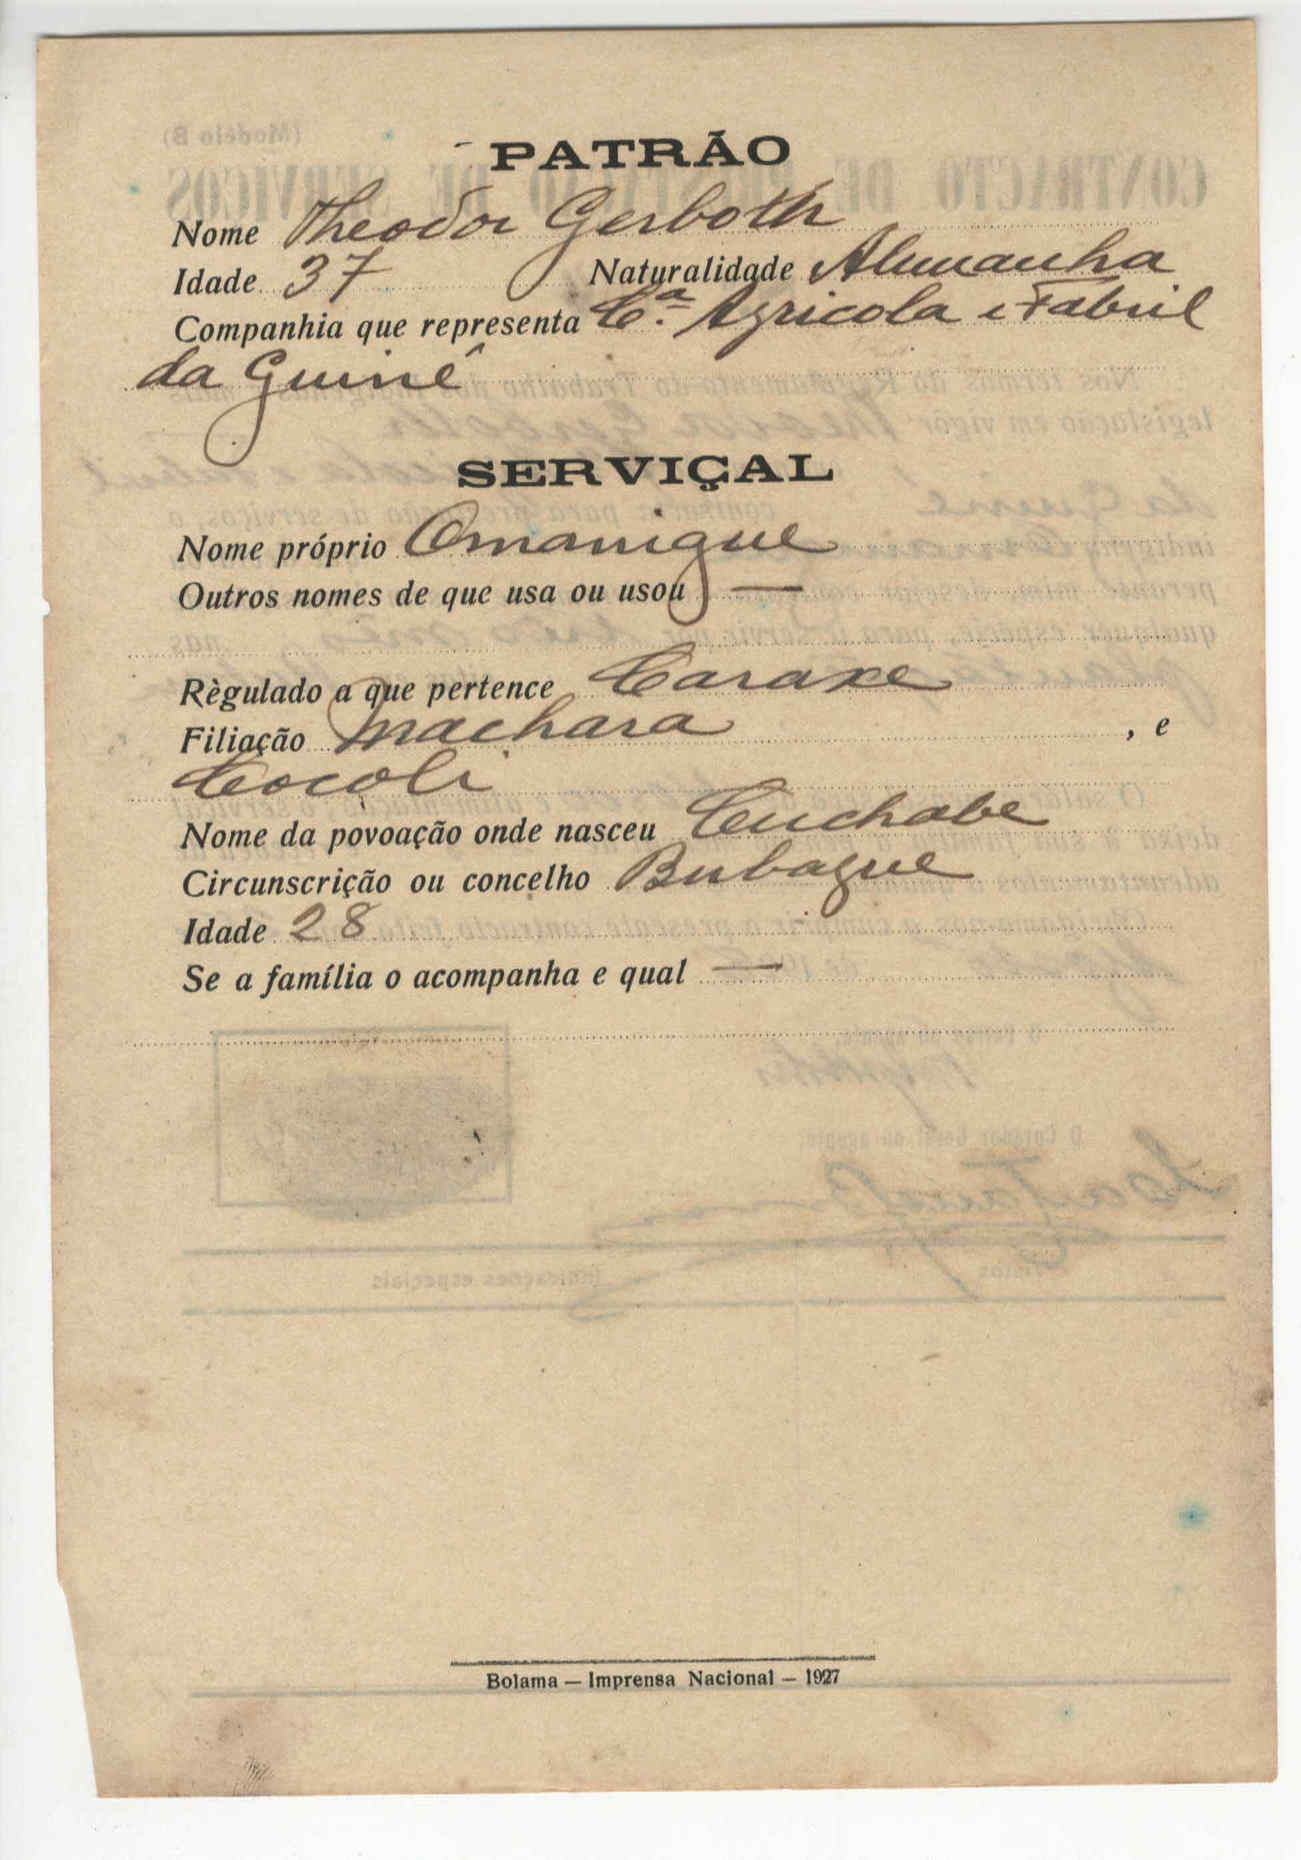 PATRÃO
Nome Theodor Gerboth
Idade 37 Naturalidade Alemanha
Companhia que representa C.ª Agricola e Fabril
da Guiné
SERVIÇAL
Nome próprio Omanigue
Outros nomes de que usa ou usou —
Règulado a que pertence Caraxe
Filiação Machara , e
Cocoli
Nome da povoação onde nasceu Cuchobe
Circunscrição ou concelho Bubaque
Idade 28
Se a família o acompanha e qual —
Bolama — Imprensa Nacional — 1927